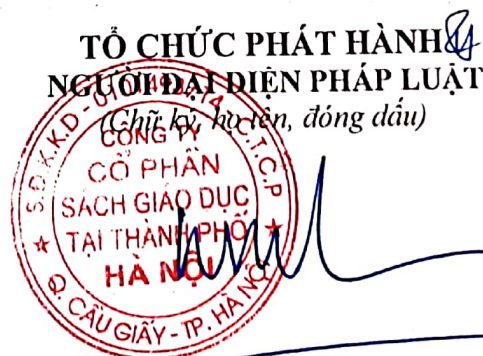 TỔ CHỨC PHÁT HÀNH
NGƯỜI ĐẠI DIỆN PHÁP LUẬT
(Chữ ký, họ tên, đóng dấu)
CÔNG TY
CỔ PHẦN
SÁCH GIÁO DỤC
TẠI THÀNH PHỐ
HÀ NỘI
Q. CẦU GIẤY - TP. HÀ NỘI